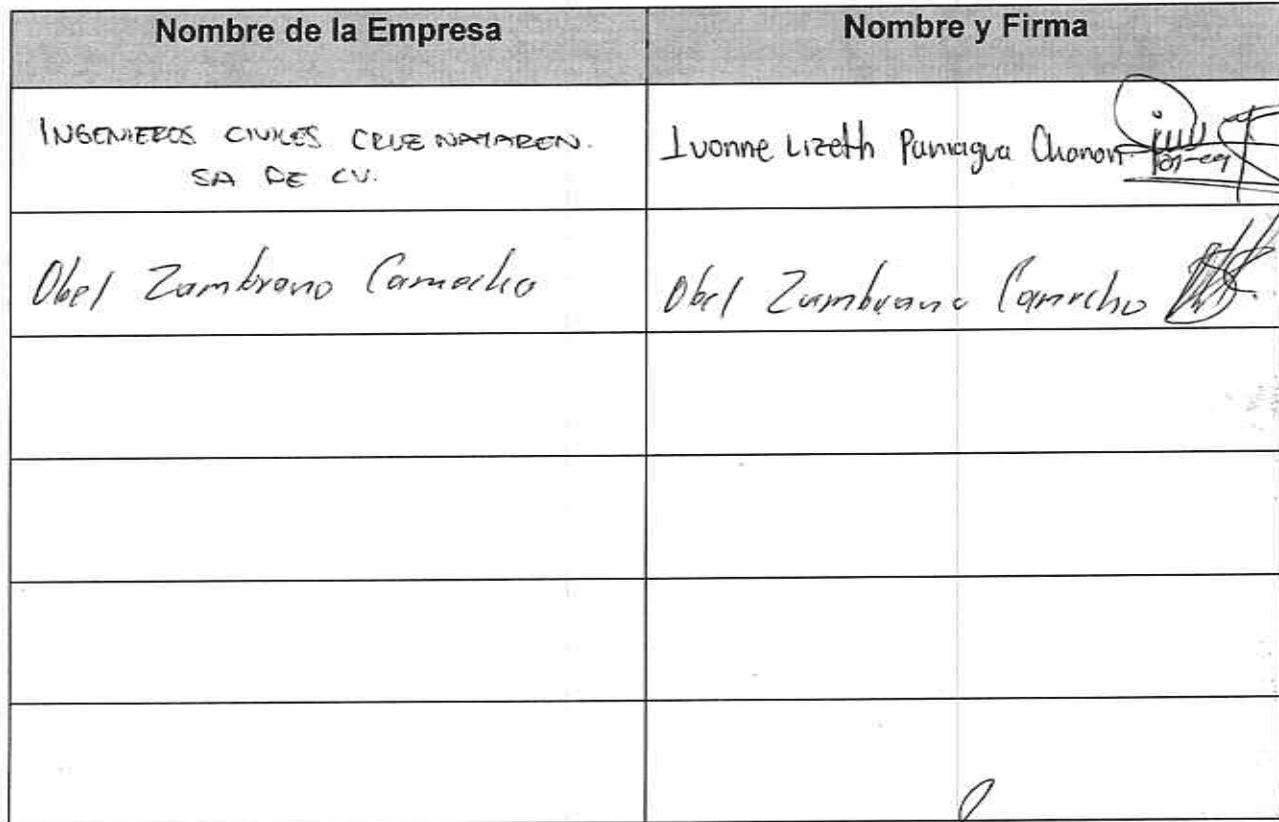 Nombre de la Empresa
Nombre y Firma
INGENIEROS CIVILES CRUZ NATAREN.
SA DE CV.
Ivonne Lizeth Paniagua Chanon
Obel Zambrano Camacho
Obel Zambrano Camacho